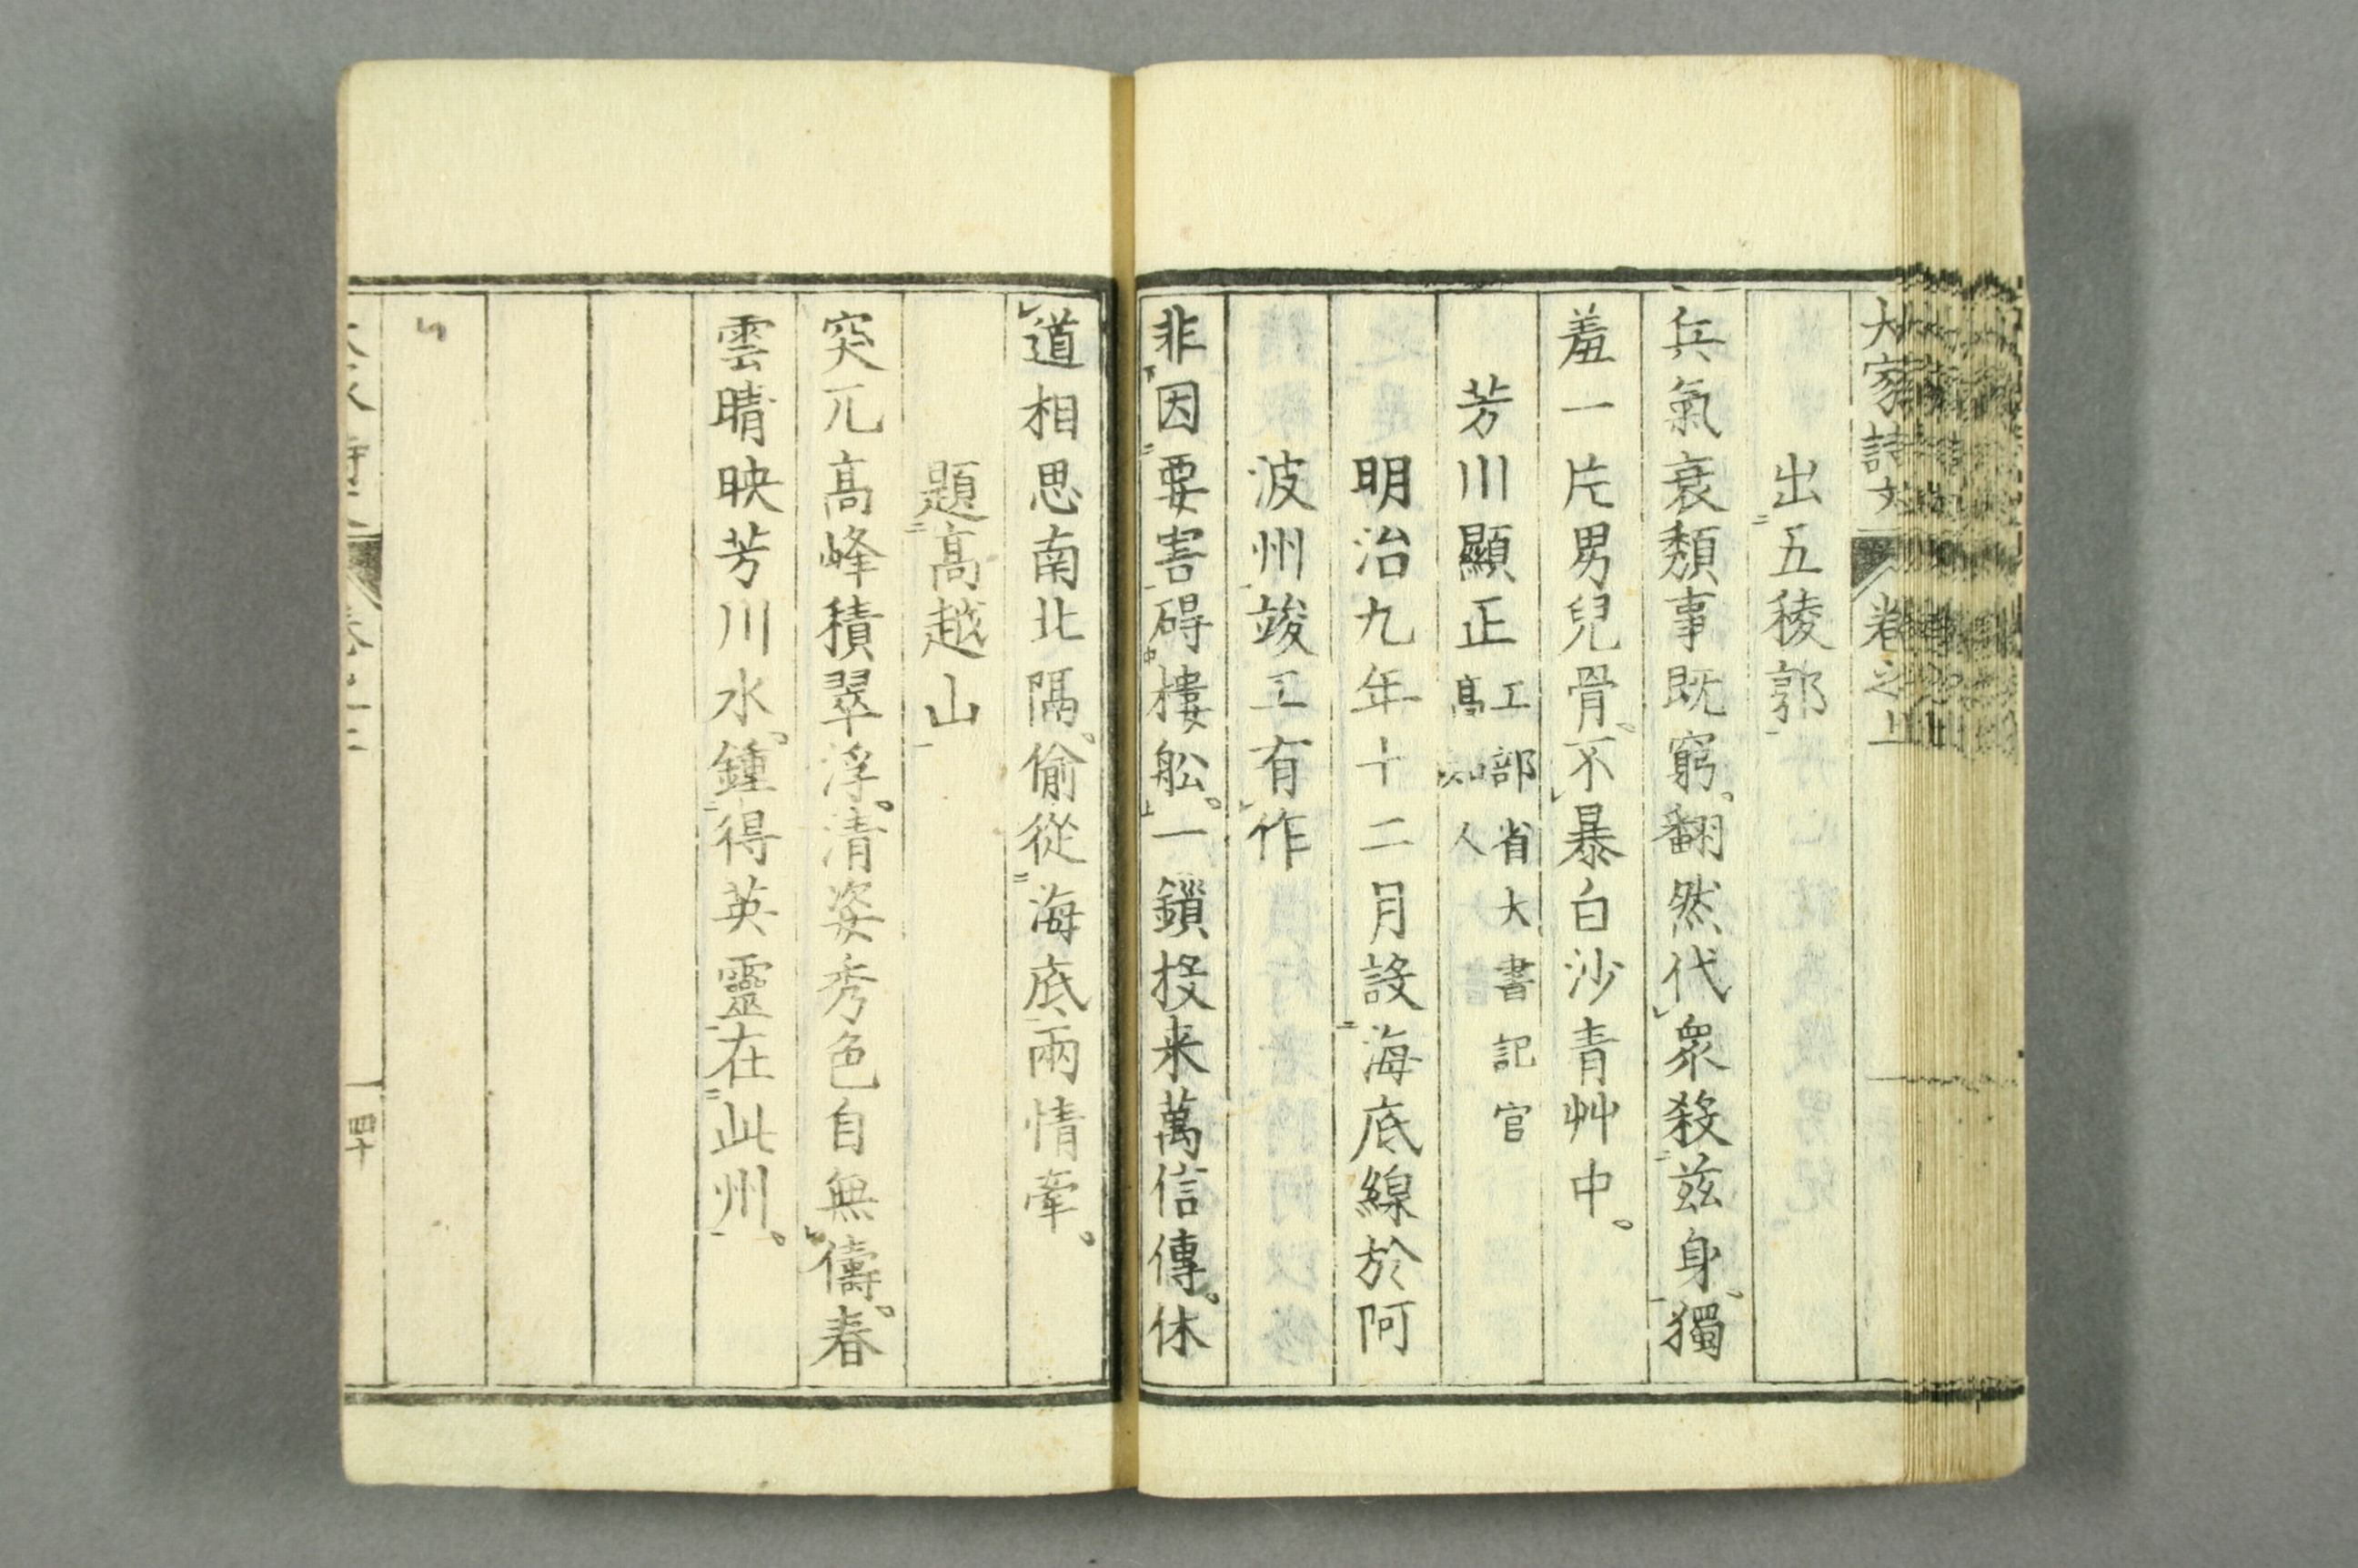 大家詩文 卷之上
出五稜郭
兵氣衰頽事既窮。翻然代衆殺茲身。獨
羞一片男兒骨。不暴白沙青艸中。
芳川顯正 工部省大書記官
高知人
明治九年十二月設海底線於阿
波州竣工有作
非因要害碍樓舩。一鎖投来萬信傳。休
道相思南北隔。偷從海底兩情牽。
題高越山
突兀高峰積翠浮。清姿秀色自無儔。春
雲晴映芳川水。鍾得英靈在此州。
四十